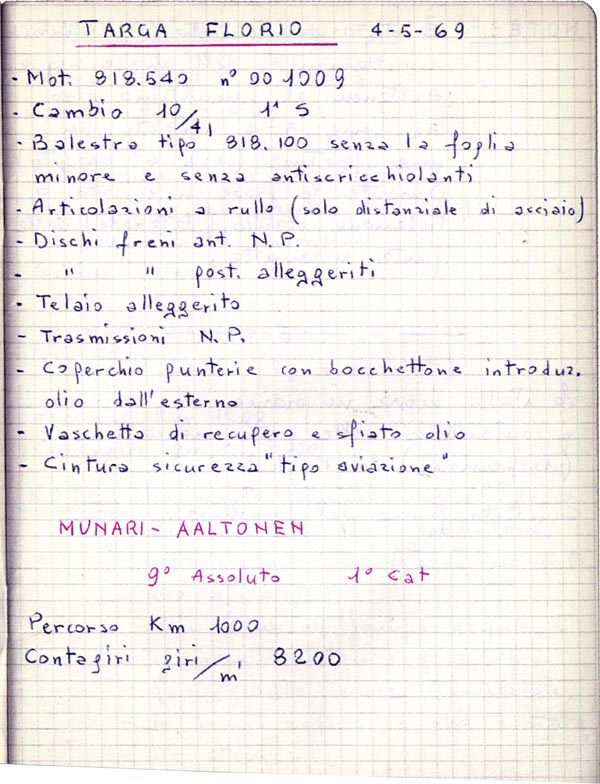 TARGA FLORIO 4-5-69
- Mot. 818.540 n° 001009
- Cambio 10/41 1ª S
- Balestra tipo 818.100 senza la foglia
minore e senza antiscricchiolanti
- Articolazioni a rullo (solo distanziale di acciaio)
- Dischi freni ant. N.P.
- " " post. alleggeriti
- Telaio alleggerito
- Trasmissioni N.P.
- Coperchio punterie con bocchettone introduz.
olio dall'esterno
- Vaschetta di recupero e sfiato olio
- Cintura sicurezza "tipo aviazione"
MUNARI - AALTONEN
9° Assoluto 1° Cat
Percorso Km 1000
Contagiri giri/m' 8200